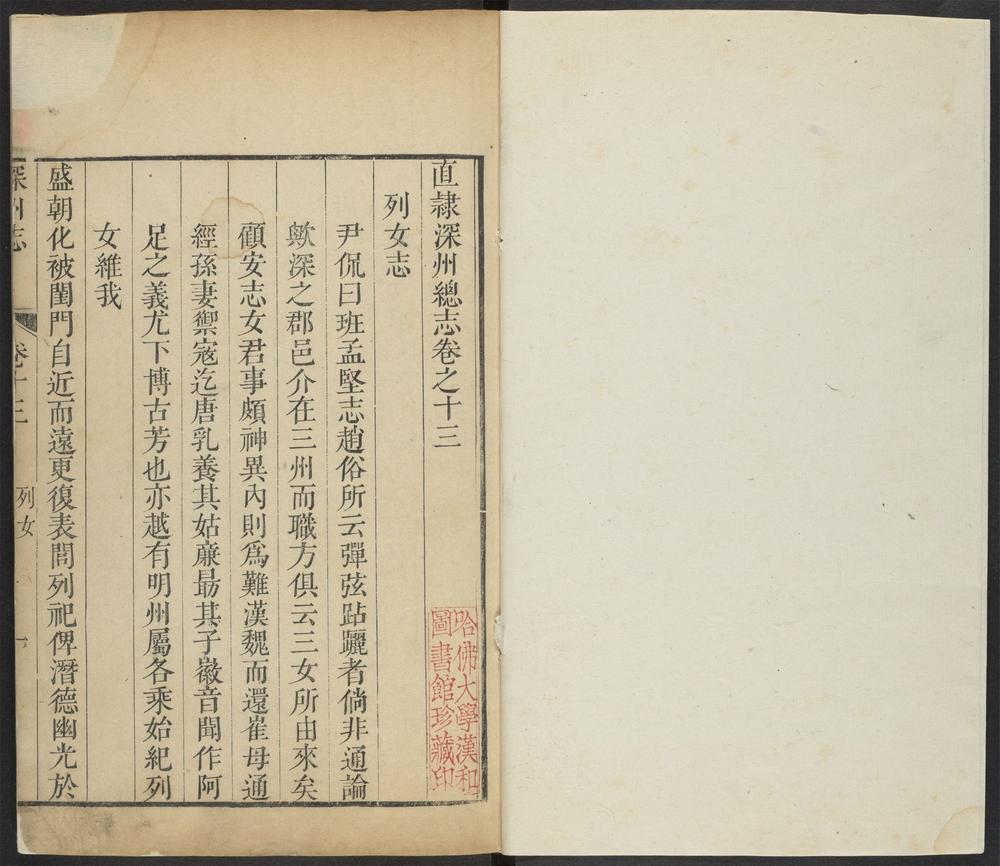 直隷深州總志卷之十三
列女志
尹侃曰班孟堅志趙俗所云彈弦跕躧者倘非通論
歟深之郡邑介在三州而職方俱云三女所由來矣
顧安志女君事頗神異內則爲難漢魏而還崔母通
經孫妻禦寇迄唐乳養其姑蔗最其子徽音聞作阿
足之義尤下博古芳也亦越有明州屬各乘始紀列
女維我
盛朝化被閨門自近而遠更復表閭列祀俾潛德幽光於
深州志
卷十三
列女
一
哈佛大學漢和
圖書館珍藏印